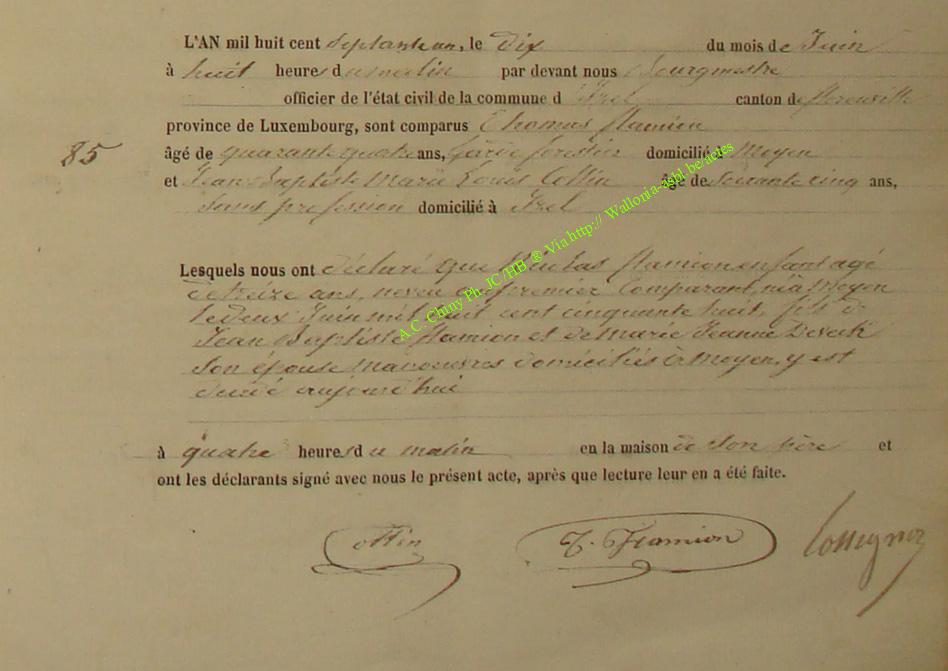 L'AN mil huit cent septante un, le Dix du mois de Juin
à huit heures du matin par devant nous Bourgmestre
officier de l'état civil de la commune d'Izel canton de Florenville
province de Luxembourg, sont comparus Thomas Flamion
85
âgé de quarante quatre ans, Garde forestier domicilié à Moyen
et Jean Baptiste Marie Louis Cottin âge de Soixante cinq ans,
Sans profession domicilié à Izel
Lesquels nous ont déclaré que Nicolas Flamion enfant agé
de treize ans, neveu du premier Comparant, né à Moyen
le deux Juin mil huit cent cinquante huit, fils de
Jean Baptiste Flamion et de Marie Jeanne
Son épouse Manoeuvres domiciliés à Moyen, y est
décédé aujourd'hui
à quatre heures du matin en la maison de Son père et
ont les déclarants signé avec nous le présent acte, après que lecture leur en a été faite.
Cottin T. Flamion
A.C. Chiny Ph. JC/HB ® Via http:// Wallonia-asbl.be/actes